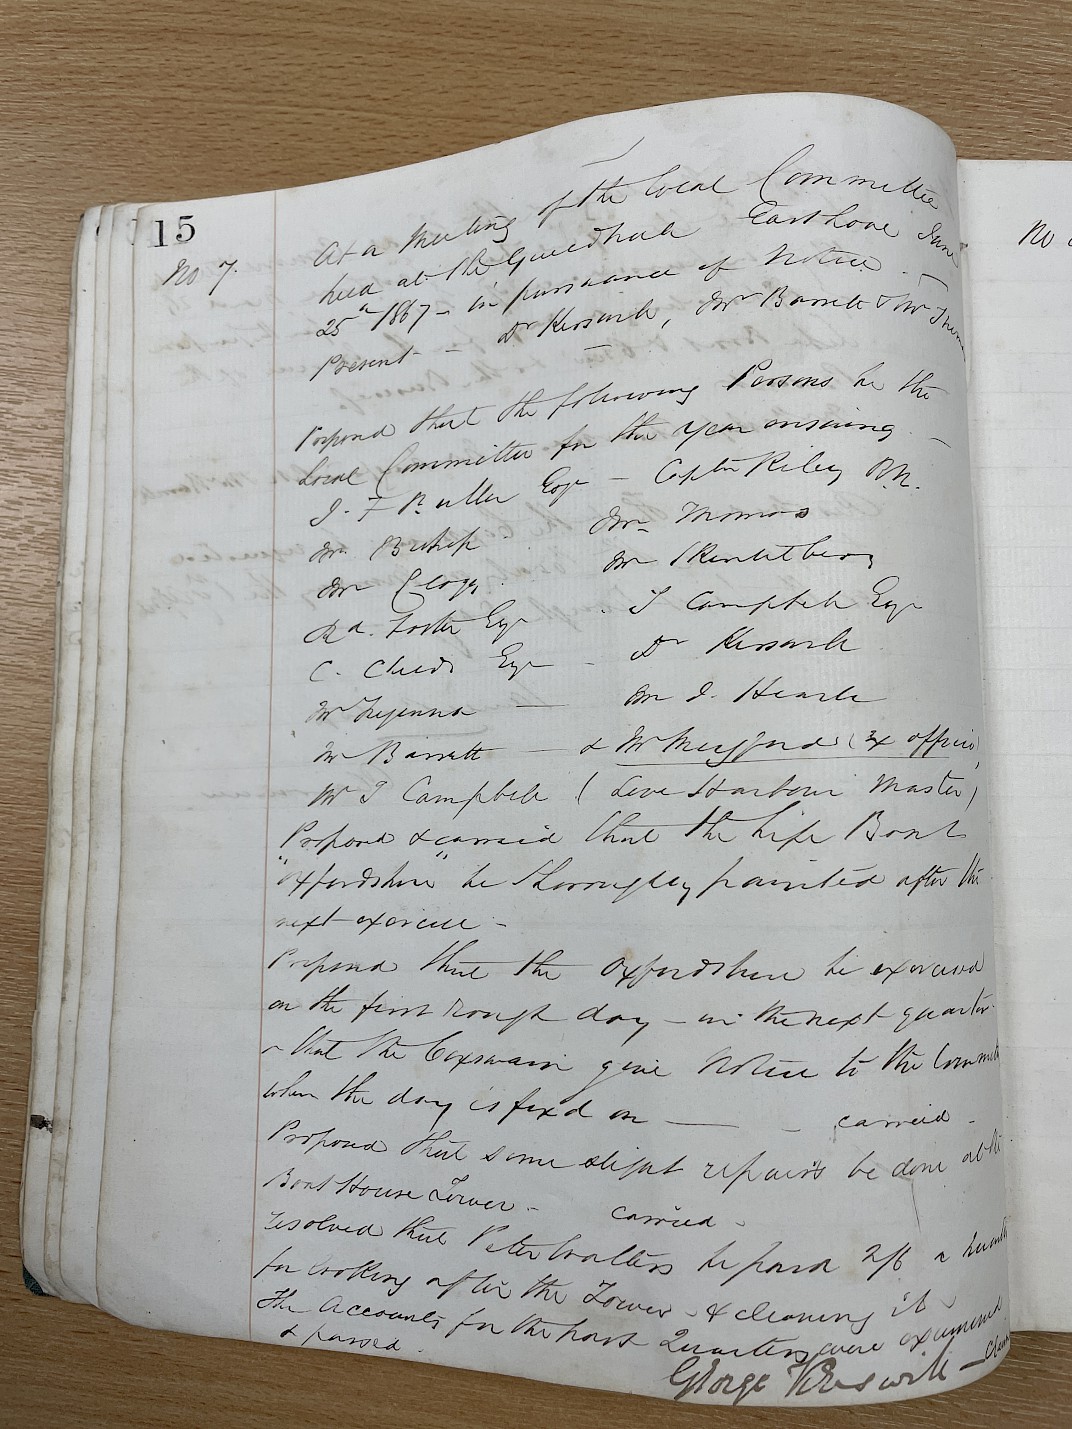 15
No 7.
At a Meeting of the Local Committee
held at the Guildhall East Looe June
25th 1867 - in pursuance of Notice -
Present - Dr Kerswill, Mr Barrett & Mr Thomas
Proposed that the following Persons be the
Local Committee for the year ensuing -
J. F Buller Esqr - Captn Riley R.N.
Mr Bishop Mr Thomas
Mr Clogg Mr Skentelbery
Rd. Foster Esqr . T Campbell Esqr
C. Childs Esqr - Dr Kerswill
Mr Tregenna - Mr J. Hearle
Mr Barrett - & Mr (Ex officio)
Mr T Campbell (Looe Harbour Master)
Proposed & carried that the Life Boat
"Oxfordshire" be thoroughly painted after the
next exercise -
Proposed that the Oxfordshire be exercised
on the first rough day - in the next quarter
& that the Coxswain give Notice to the Committee
when the day is fixed on - - carried -
Proposed that some slight repairs be done at the
Boat House Tower - carried -
resolved that Peter Walters be paid 2/6 a
for looking after the Tower - & cleaning it -
The Accounts for the past Quarter were examined
& passed.
George Kerswill -
No